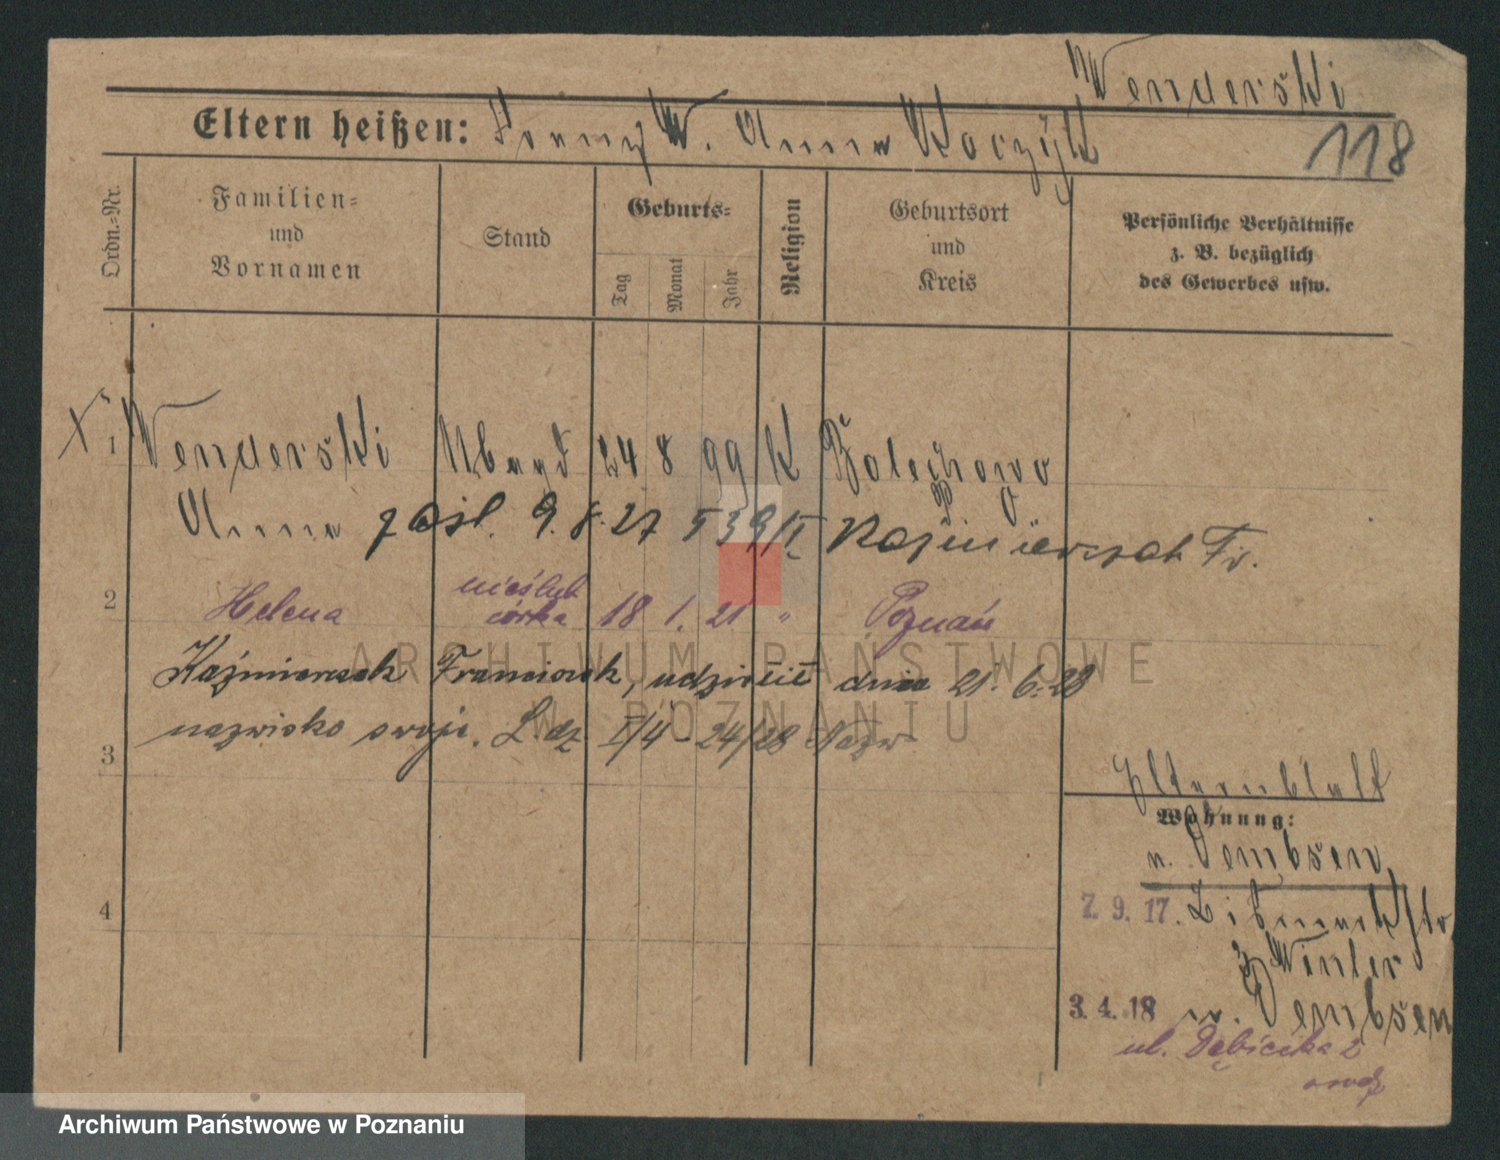 Wenderski
Eltern heißen: Franz W. Anna Koczyk
118
Ordn.-Nr.
Familien-
und
Vornamen
Stand
Geburts-
Tag
Monat
Jahr
Religion
Geburtsort
und
Kreis
Persönliche Verhältnisse
z. B. bezüglich
des Gewerbes usw.
1 Wenderski 24 8 99 K Bolechowo
Anna zaśl. 9.8.27 Kaźmierczak Fr.
2 Helena nieślub
córka 18 1. 21 " Poznań
Kaźmierczak Franciszek, udzielił dnia 21.6.28
3 nazwisko swoje. L. dz. 24/28
4
Elternblatt
Wohnung:
n. Dembsen
7. 9. 17.
Winter
3. 4. 18 n. Dembsen
ul. Dębiecka 2
ARCHIWUM PAŃSTWOWE
W POZNANIU
Archiwum Państwowe w Poznaniu